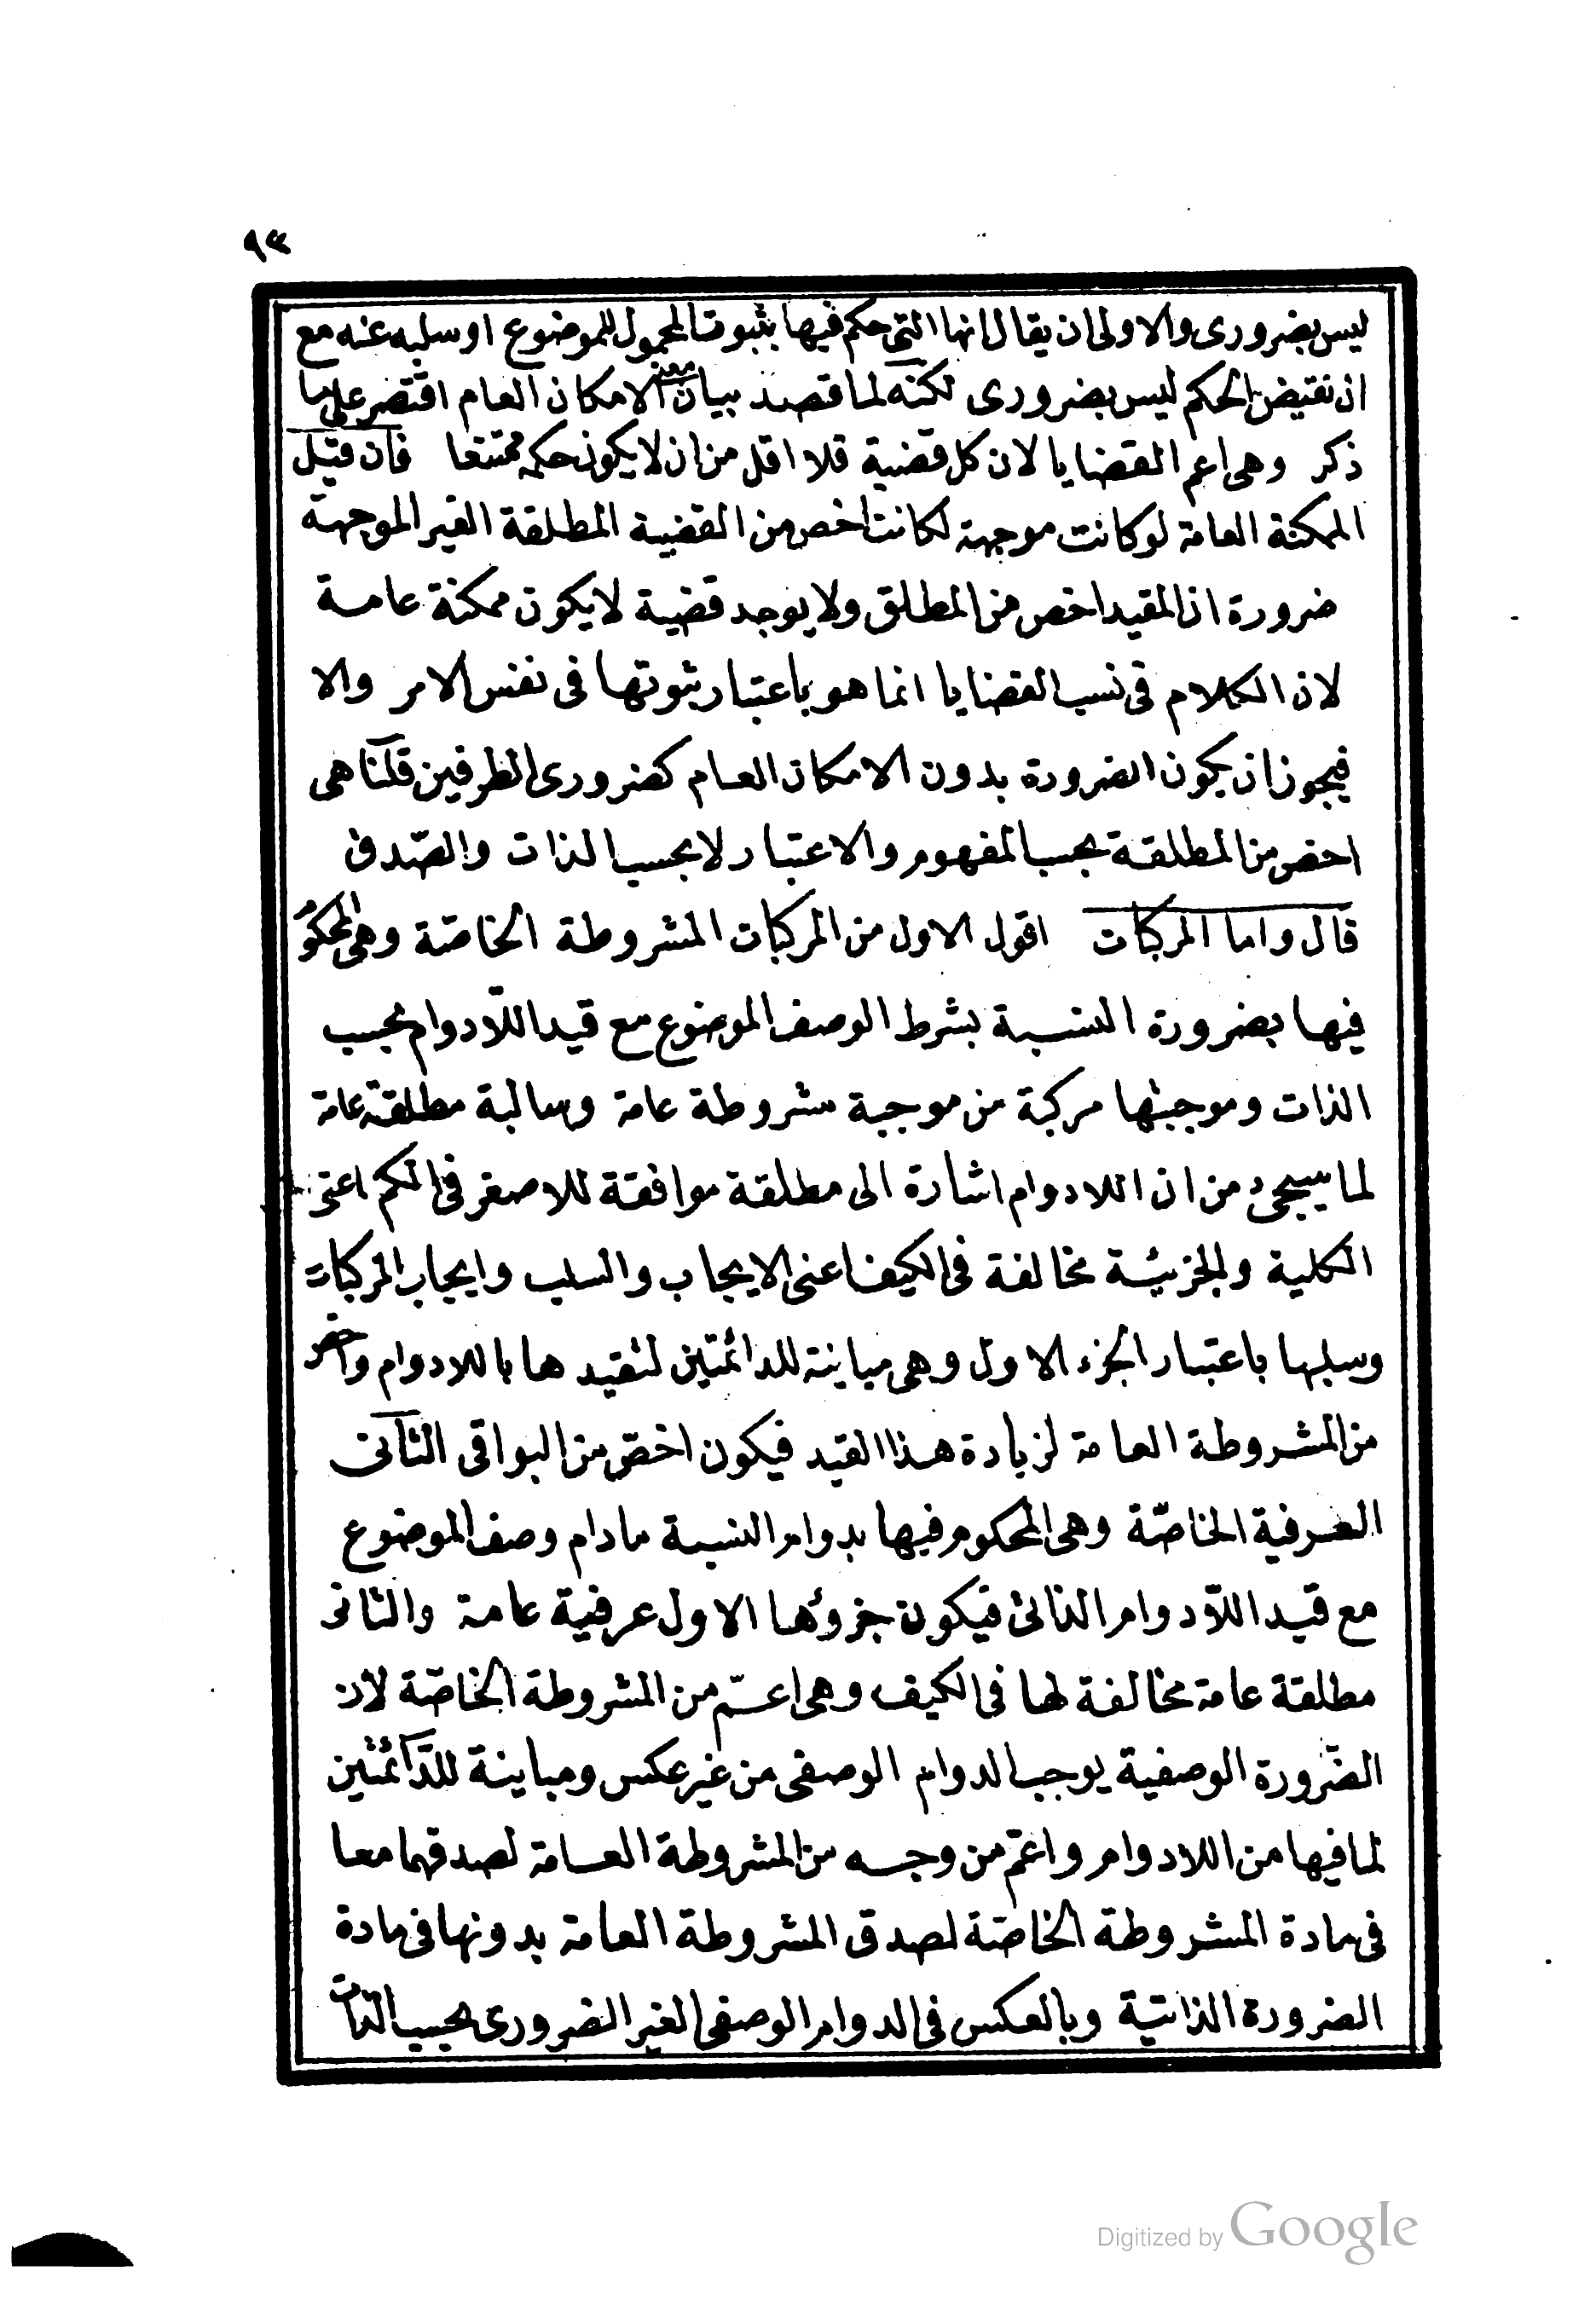 ٩٣
ليس بضرورى والاولى ان يقال انها التى حكم فيها بثبوت المحمول للموضوع او سلبه عنه مع
ان نقيض الحكم ليس بضرورى لكنه لما قصد بيان معنى الامكان العام اقتصر على ما
ذكر وهى اعم القضايا لان كل قضية فلا اقل من ان لا يكون حكمه ممتنعا فان قيل
الممكنة العامة لو كانت موجهة لكانت اخص من القضية المطلقة الغير الموجهة
ضرورة ان المقيد اخص من المطلق ولا يوجد قضية لا يكون ممكنة عامة
لان الكلام فى نسب القضايا انما هو باعتبار ثبوتها فى نفس الامر والا
فيجوز ان يكون الضرورة بدون الامكان العام كضرورى الطرفين قلنا هى
اخص من المطلقة بحسب المفهوم والاعتبار لا بحسب الذات والصّدق
قال واما المركبات اقول الاول من المركبات المشروطة الخاصّة وهى المحكوم
فيها بضرورة النسبة بشرط الوصف الموضوع مع قيد اللّادوام بحسب
الذات وموجبتها مركبة من موجبة مشروطة عامة وسالبة مطلقة عامة
لما سيجىء من ان اللادوام اشارة الى مطلقة موافقة للاصغر فى الكم اعنى
الكلية والجزئية مخالفة فى الكيف اعنى الايجاب والسلب وايجاب المركبات
وسلبها باعتبار الجزء الاول وهى مباينة للدائمتين لتقيدها باللادوام واخص
من المشروطة العامة لزيادة هذا القيد فيكون اخصّ من البواقى الثانى
العرفية الخاصّة وهى المحكوم فيها بدوام النسبة مادام وصف الموضوع
مع قيد اللّادوام الذاتى فيكون جزؤها الاول عرفية عامة والثانى
مطلقة عامة مخالفة لها فى الكيف وهى اعمّ من المشروطة الخاصّة لان
الضّرورة الوصفية يوجب الدوام الوصفى من غير عكس ومباينة للدّائمتين
لما فيها من اللادوام واعمّ من وجه من المشروطة العامة لصدقهما معا
فى مادة المشروطة الخاصّة لصدق المشروطة العامة بدونها فى مادة
الضرورة الذاتيّة وبالعكس فى الدوام الوصفى الغير الضرورى بحسب الذات
Digitized by Google